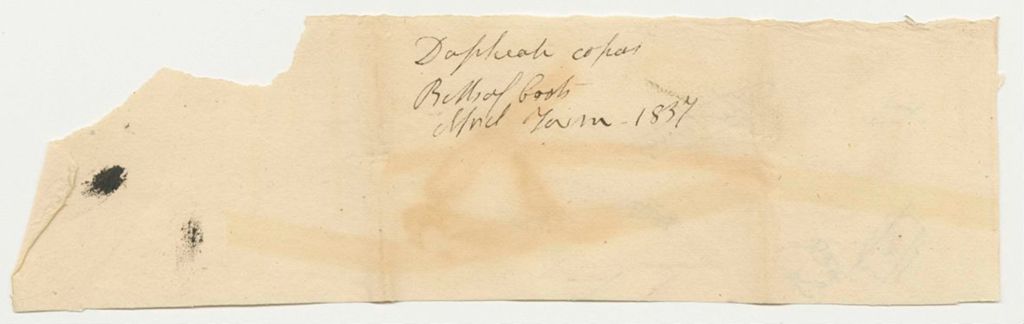 Duplicate copies
Bills of Costs
April Term - 1837